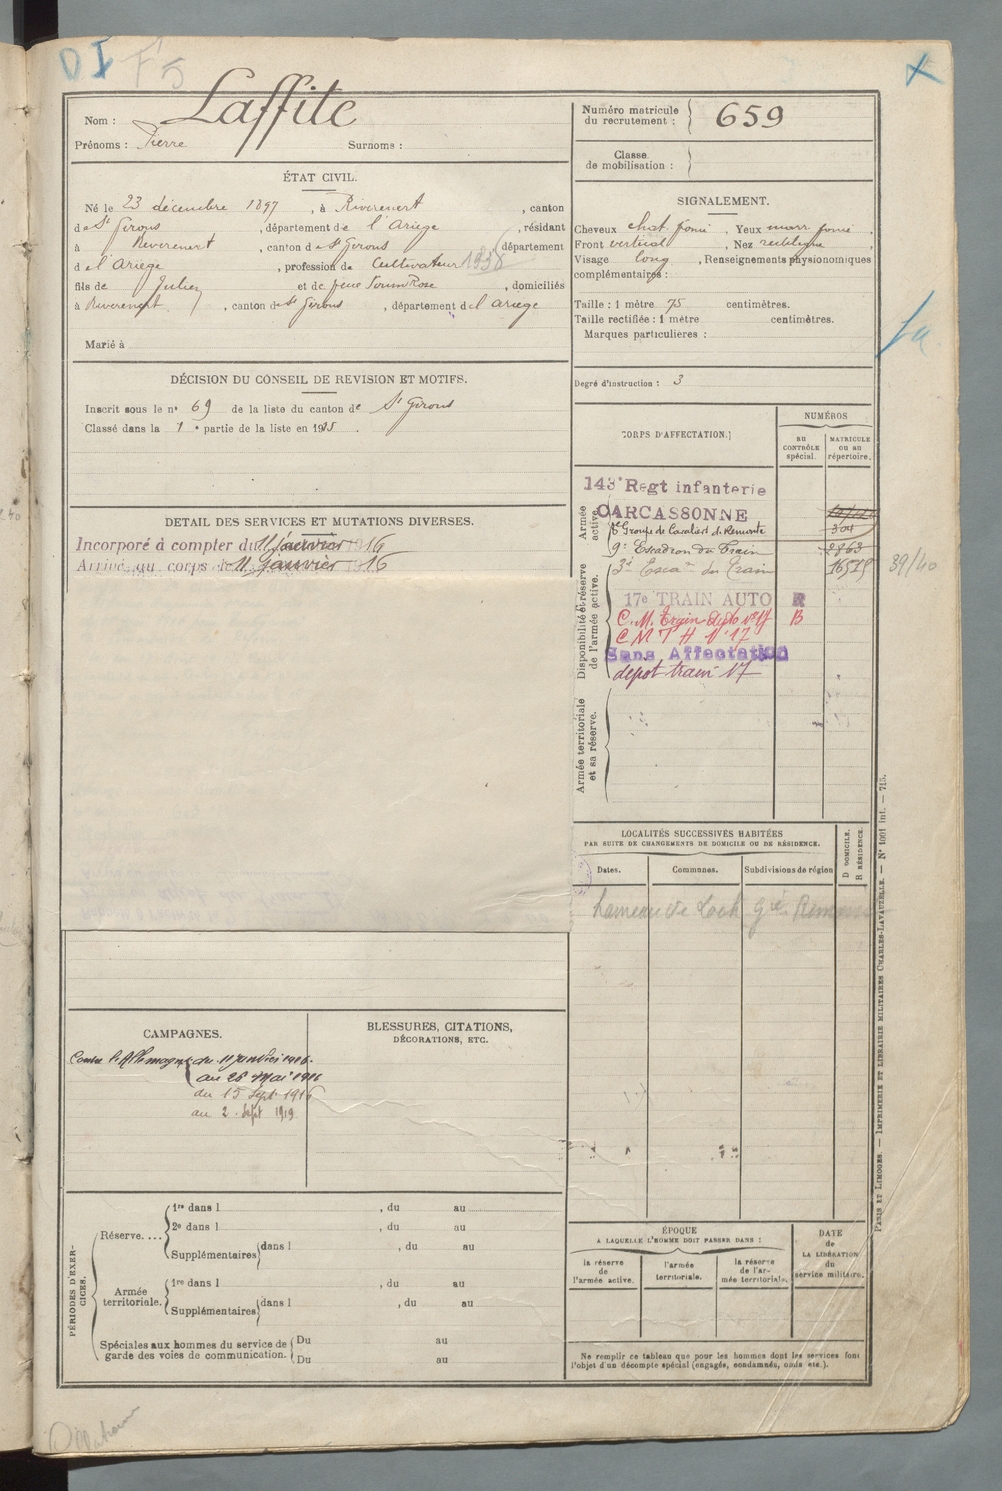 DI F5
Nom : Laffite
Prénoms : Pierre Surnoms :
ÉTAT CIVIL.
Né le 23 décembre 1897, à Riverenert, canton
de St Girons, département de l'Ariège, résidant
à Riverenert, canton de St Girons, département
de l'Ariège, profession de Cultivateur 1938
fils de Julien et de feue Rose, domiciliés
à Riverenert, canton de St Girons, département de l'Ariège
Marié à
DÉCISION DU CONSEIL DE REVISION ET MOTIFS.
Inscrit sous le n° 69 de la liste du canton de St Girons
Classé dans la 1e partie de la liste en 1915.
DETAIL DES SERVICES ET MUTATIONS DIVERSES.
Incorporé à compter du 11 janvier 1916
Arrivé au corps le 11 janvier 16
CAMPAGNES.
Contre l'Allemagne du 11 janvier 1916.
au 26 Mai 1916
du 15 Sept 1916
au 2 Sept 1919
BLESSURES, CITATIONS,
DÉCORATIONS, ETC.
PÉRIODES D'EXERCICES.
Réserve....
1re dans l , du au
2e dans l , du au
Supplémentaires dans l , du au
Armée
territoriale.
1re dans l , du au
Supplémentaires dans l , du au
Spéciales aux hommes du service de
garde des voies de communication.
Du au
Du au
Numéro matricule
du recrutement : 659
Classe
de mobilisation :
SIGNALEMENT.
Cheveux chat. foncé, Yeux marr. foncé,
Front vertical, Nez rectiligne
Visage long, Renseignements physionomiques
complémentaires :
Taille : 1 mètre 75 centimètres.
Taille rectifiée : 1 mètre centimètres.
Marques particulières :
Degré d'instruction : 3
CORPS D'AFFECTATION.
NUMÉROS
au
CONTRÔLE
spécial.
MATRICULE
ou au
répertoire.
Armée
active.
143e Regt infanterie
CARCASSONNE
Groupe de Cavaliers de Remonte
9e Escadron du Train 2863
3e Escon du Train 16515
39/40
Disponibilité et réserve
de l'armée active.
17e TRAIN AUTO R
C. M. Train Auto n° 17 B
C M T H N° 17
Sans Affectation
depot train 17
Armée territoriale
et sa réserve.
LOCALITÉS SUCCESSIVES HABITÉES
PAR SUITE DE CHANGEMENTS DE DOMICILE OU DE RÉSIDENCE.
Dates.
Communes.
Subdivisions de région
D DOMICILE.
R RÉSIDENCE.
hameau de
ÉPOQUE
A LAQUELLE L'HOMME DOIT PASSER DANS :
la réserve
de
l'armée active.
l'armée
territoriale.
la réserve
de l'ar-
mée territoriale.
DATE
de
LA LIBÉRATION
du
service militaire.
Ne remplir ce tableau que pour les hommes dont les services font
l'objet d'un décompte spécial (engagés, condamnés, omis etc.).
PARIS ET LIMOGES. — IMPRIMERIE ET LIBRAIRIE MILITAIRES CHARLES-LAVAUZELLE. — N° 1001 int. — 715.